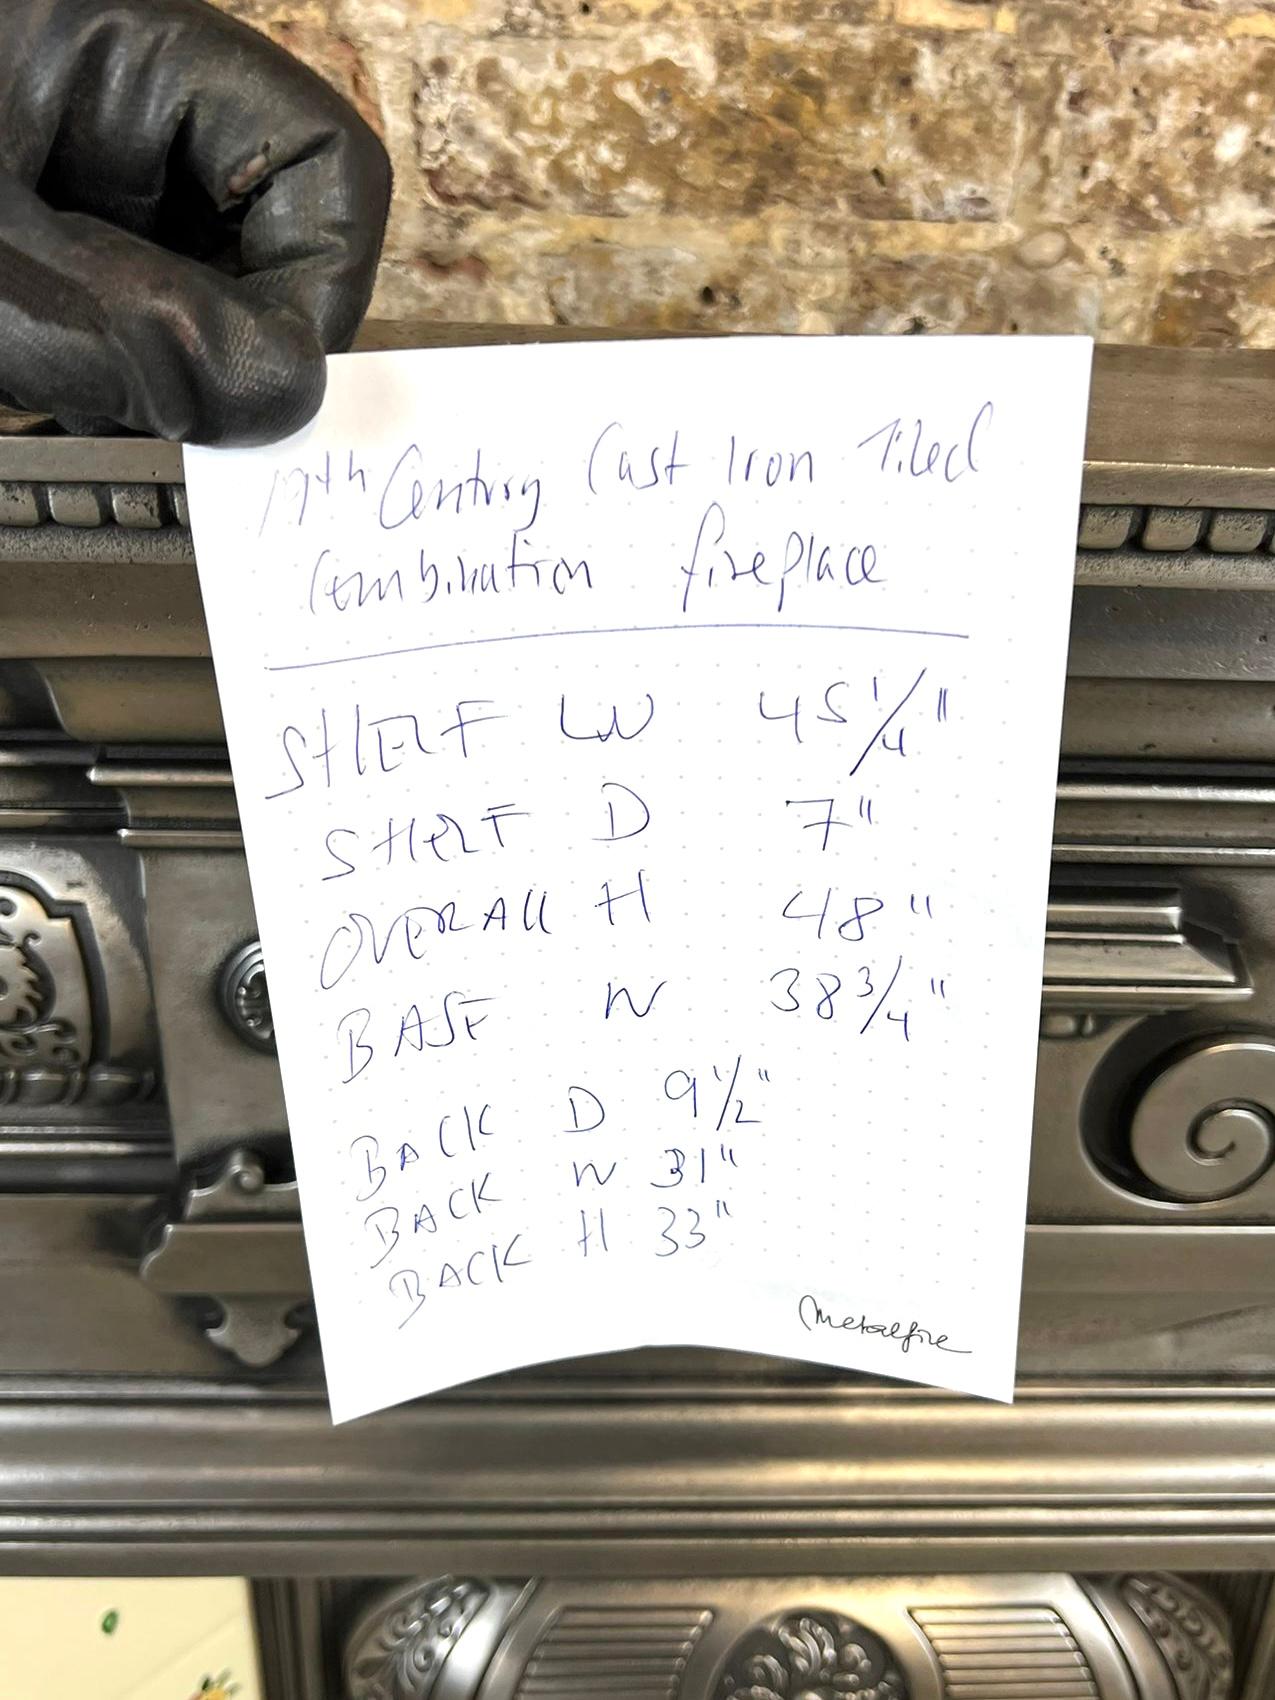 19th Century Cast Iron Tiled
Combination fireplace
SHELF W 45 1/4"
SHELF D 7"
OVERALL H 48"
BASE W 38 3/4"
BACK D 9 1/2"
BACK W 31"
BACK H 33"
Metalfire